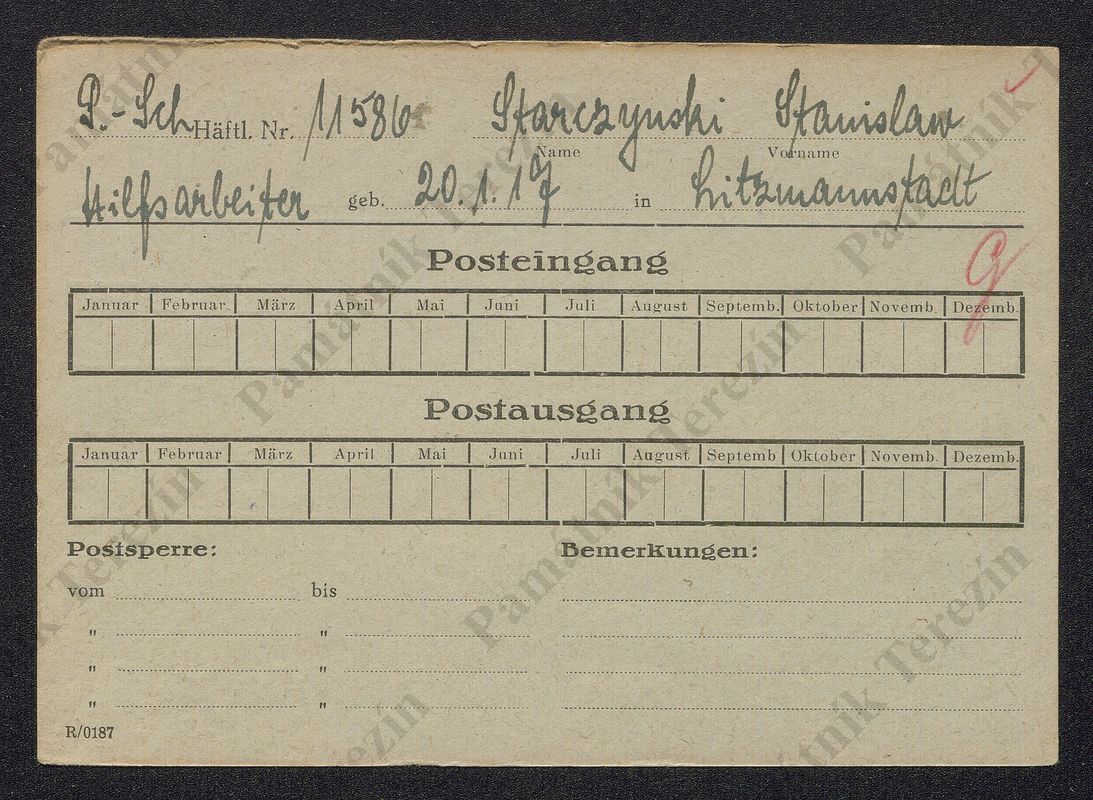 P.-Sch Häftl. Nr. 11586 Starczynski Stanislaw
Name Vorname
Hilfsarbeiter geb. 20.1.17 in Litzmannstadt
Posteingang
Januar Februar März April Mai Juni Juli August Septemb. Oktober Novemb. Dezemb.
Postausgang
Januar Februar März April Mai Juni Juli August Septemb Oktober Novemb. Dezemb.
Postsperre: Bemerkungen:
vom bis
" "
" "
" "
R/0187
Památník Terezín